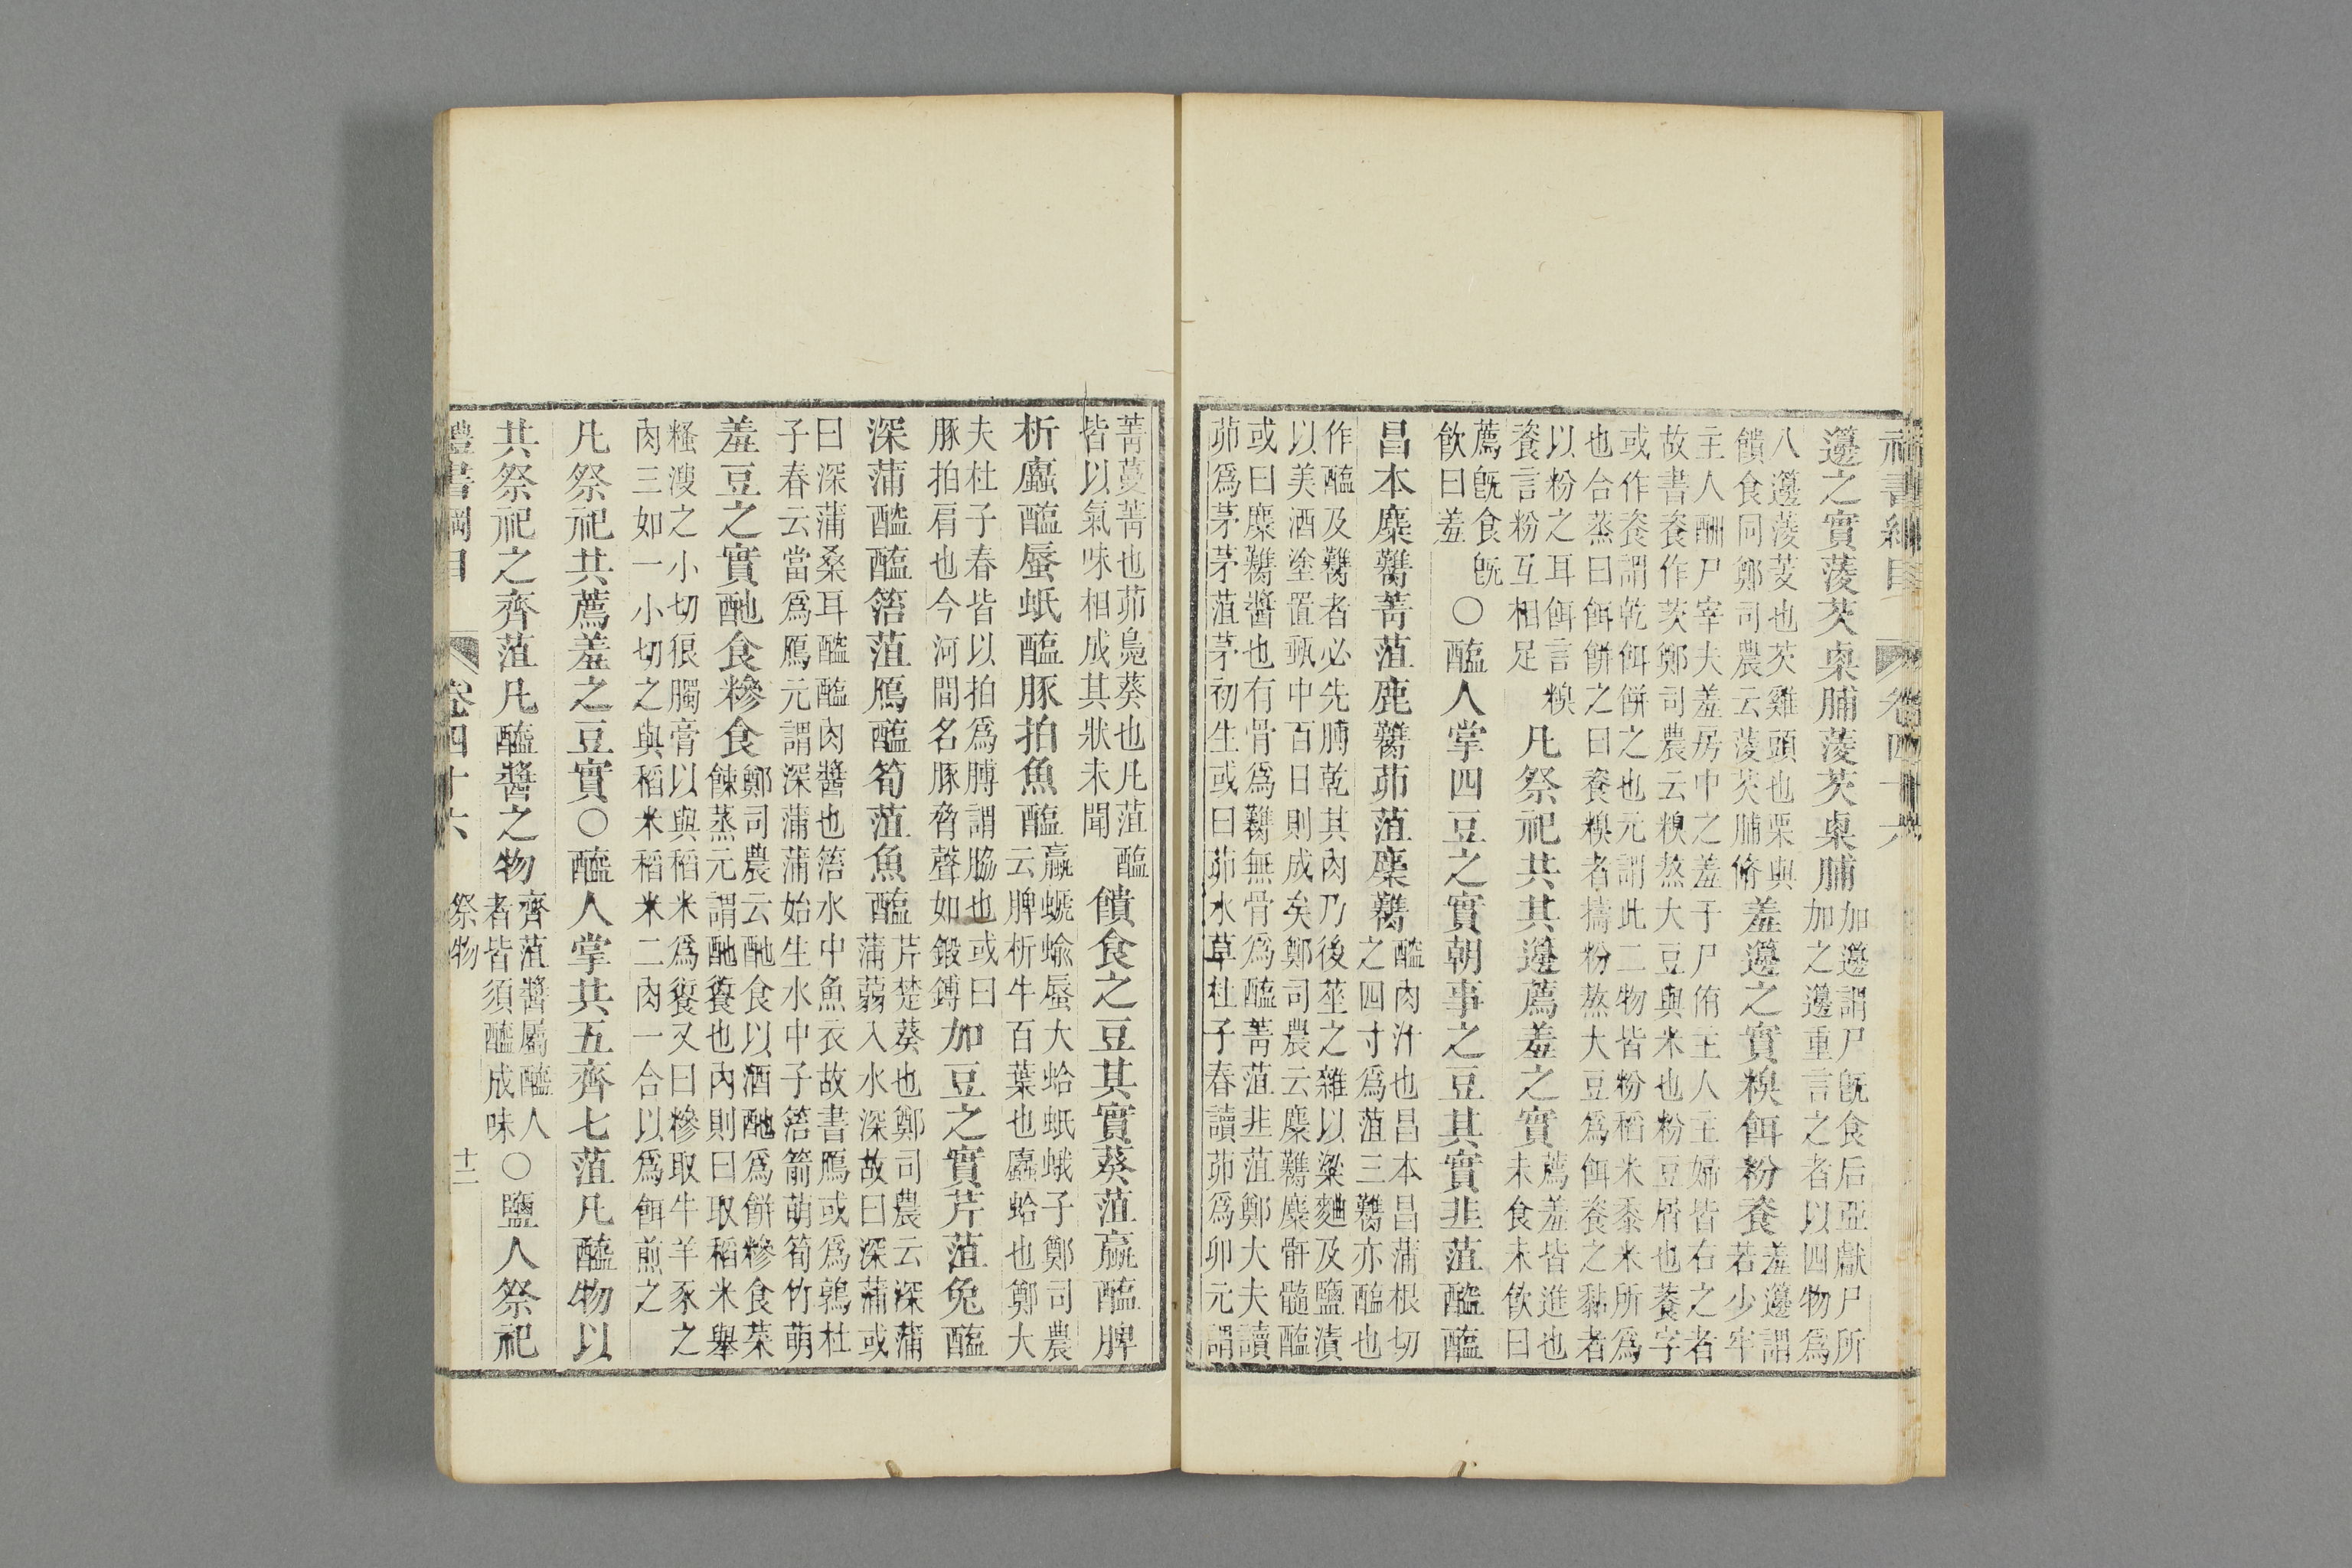 禮書綱目 卷四十六
籩之實蔆芡㮚脯蔆芡㮚脯
加籩謂尸旣食后亞獻尸所
加之籩重言之者以四物爲
八籩蔆芰也芡雞頭也栗與
饋食同鄭司農云蔆芡脯脩
羞籩之實糗餌粉餈
羞籩謂
若少牢
主人酬尸宰夫羞房中之羞于尸侑主人主婦皆右之者
故書餈作茨鄭司農云糗熬大豆與米也粉豆屑也餈字
或作餈謂乾餌餅之也元謂此二物皆粉稻米黍米所爲
也合蒸曰餌餅之曰餈糗者擣粉熬大豆爲餌餈之黏者
以粉之耳餌言糗
餈言粉互相足
凡祭祀共其籩薦羞之實
薦羞皆進也
未食未飮曰
薦旣食旣
飮曰羞
○醢人掌四豆之實朝事之豆其實韭菹醓醢
昌本麋臡菁菹鹿臡茆菹麇臡
醓肉汁也昌本昌蒲根切
之四寸爲菹三臡亦醢也
作醢及臡者必先膊乾其肉乃後莝之雜以粱麴及鹽漬
以美酒塗置甀中百日則成矣鄭司農云麋臡麋骭髓醢
或曰麋臡醬也有骨爲臡無骨爲醢菁菹韭菹鄭大夫讀
茆爲茅茅菹茅初生或曰茆水草杜子春讀茆爲卯元謂
菁蔓菁也茆鳧葵也凡菹醢
皆以氣味相成其狀未聞
饋食之豆其實葵菹蠃醢脾
析蠯醢蜃蚳醢豚拍魚醢
蠃螔蝓蜃大蛤蚳蛾子鄭司農
云脾析牛百葉也蠯蛤也鄭大
夫杜子春皆以拍爲膊謂脇也或曰
豚拍肩也今河間名豚脅聲如鍛鎛
加豆之實芹菹兔醢
深蒲醓醢箈菹鴈醢筍菹魚醢
芹楚葵也鄭司農云深蒲
蒲蒻入水深故曰深蒲或
曰深蒲桑耳醓醢肉醬也箈水中魚衣故書鴈或爲鶉杜
子春云當爲鴈元謂深蒲蒲始生水中子箈箭萌筍竹萌
羞豆之實酏食糝食
鄭司農云酏食以酒酏爲餅糝食菜
餗蒸元謂酏䬾也內則曰取稻米舉
糔溲之小切狼臅膏以與稻米爲䬾又曰糝取牛羊豕之
肉三如一小切之與稻米稻米二肉一合以爲餌煎之
凡祭祀共薦羞之豆實○醢人掌共五齊七菹凡醢物以
共祭祀之齊菹凡醢醬之物
齊菹醬屬醢人
者皆須醢成味
○鹽人祭祀
禮書綱目 卷四十六 祭物 十二